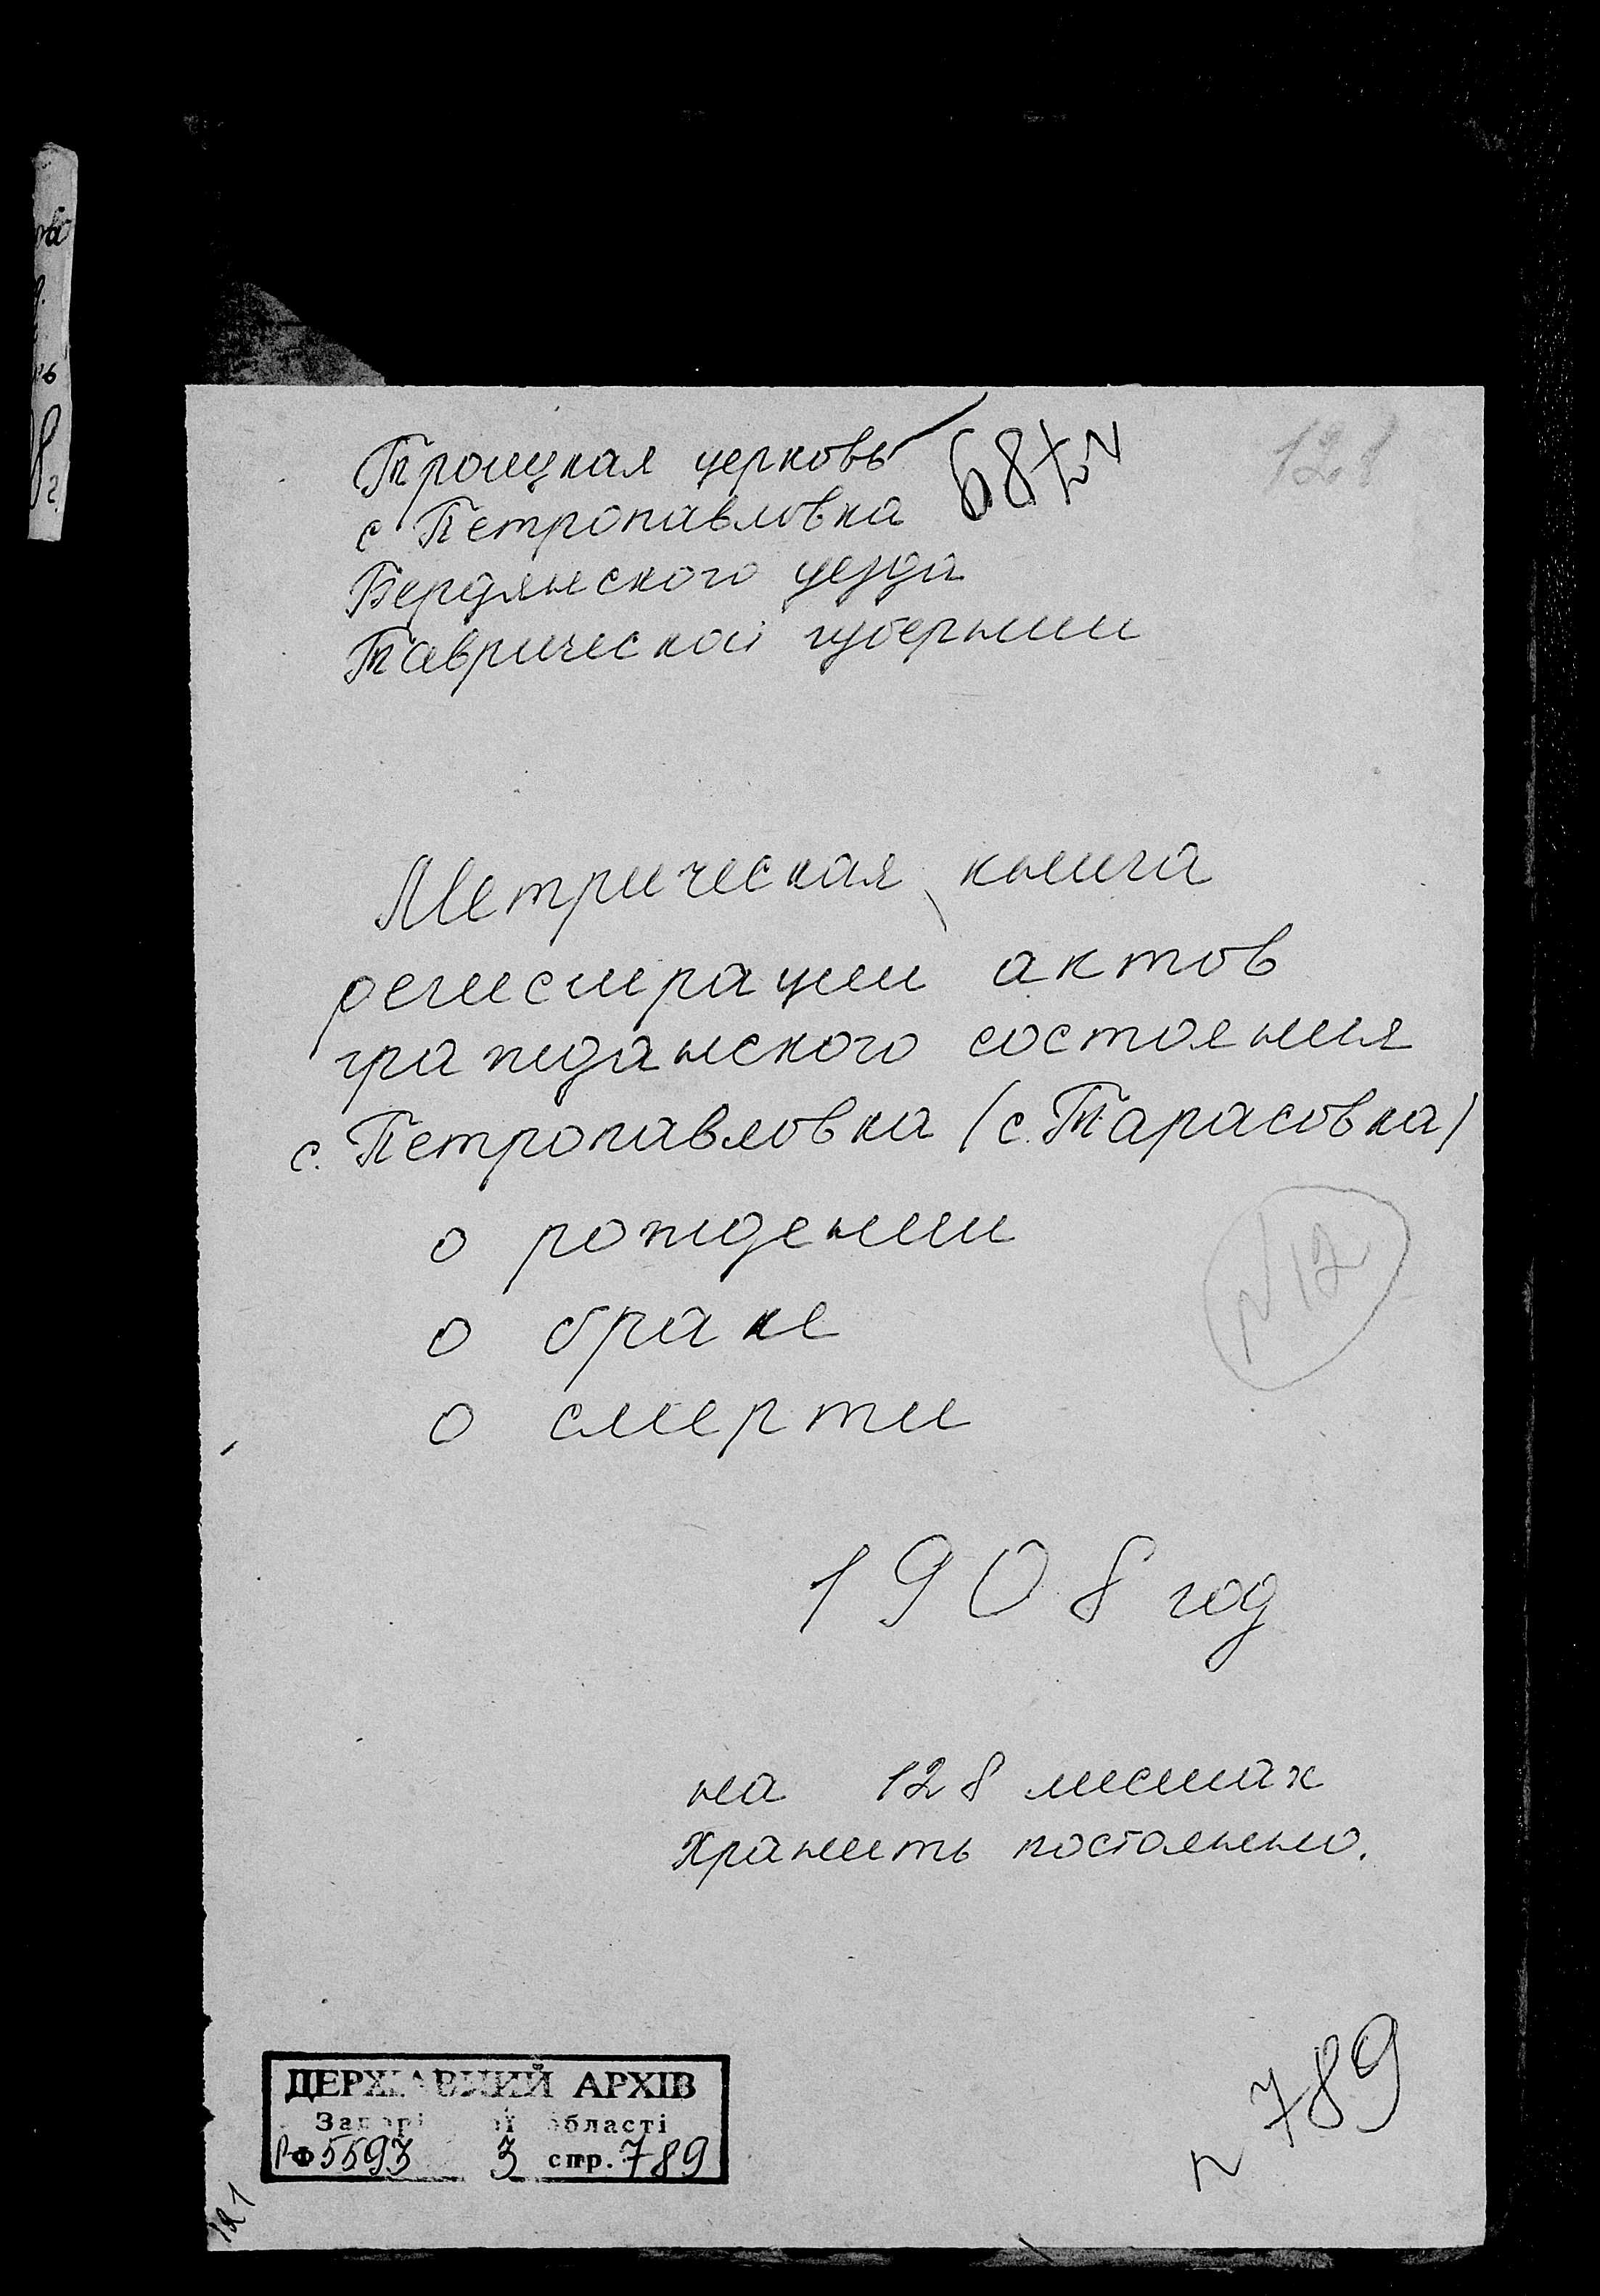 Троицкая церковь
128
с Петропавловка
Бердянского уезда
Таврической губернии
Метрическая книга
регистрации актов
гражданского состояния
с. Петропавловка (с. Тарасовка)
о рождении
N12
о браке
о смерти
1908 год
на 128 листах
Хранить постоянно.
789
ДЕРЖАВНИЙ АРХІВ
Запорізької області
РФ 5593 3 спр. 789
121